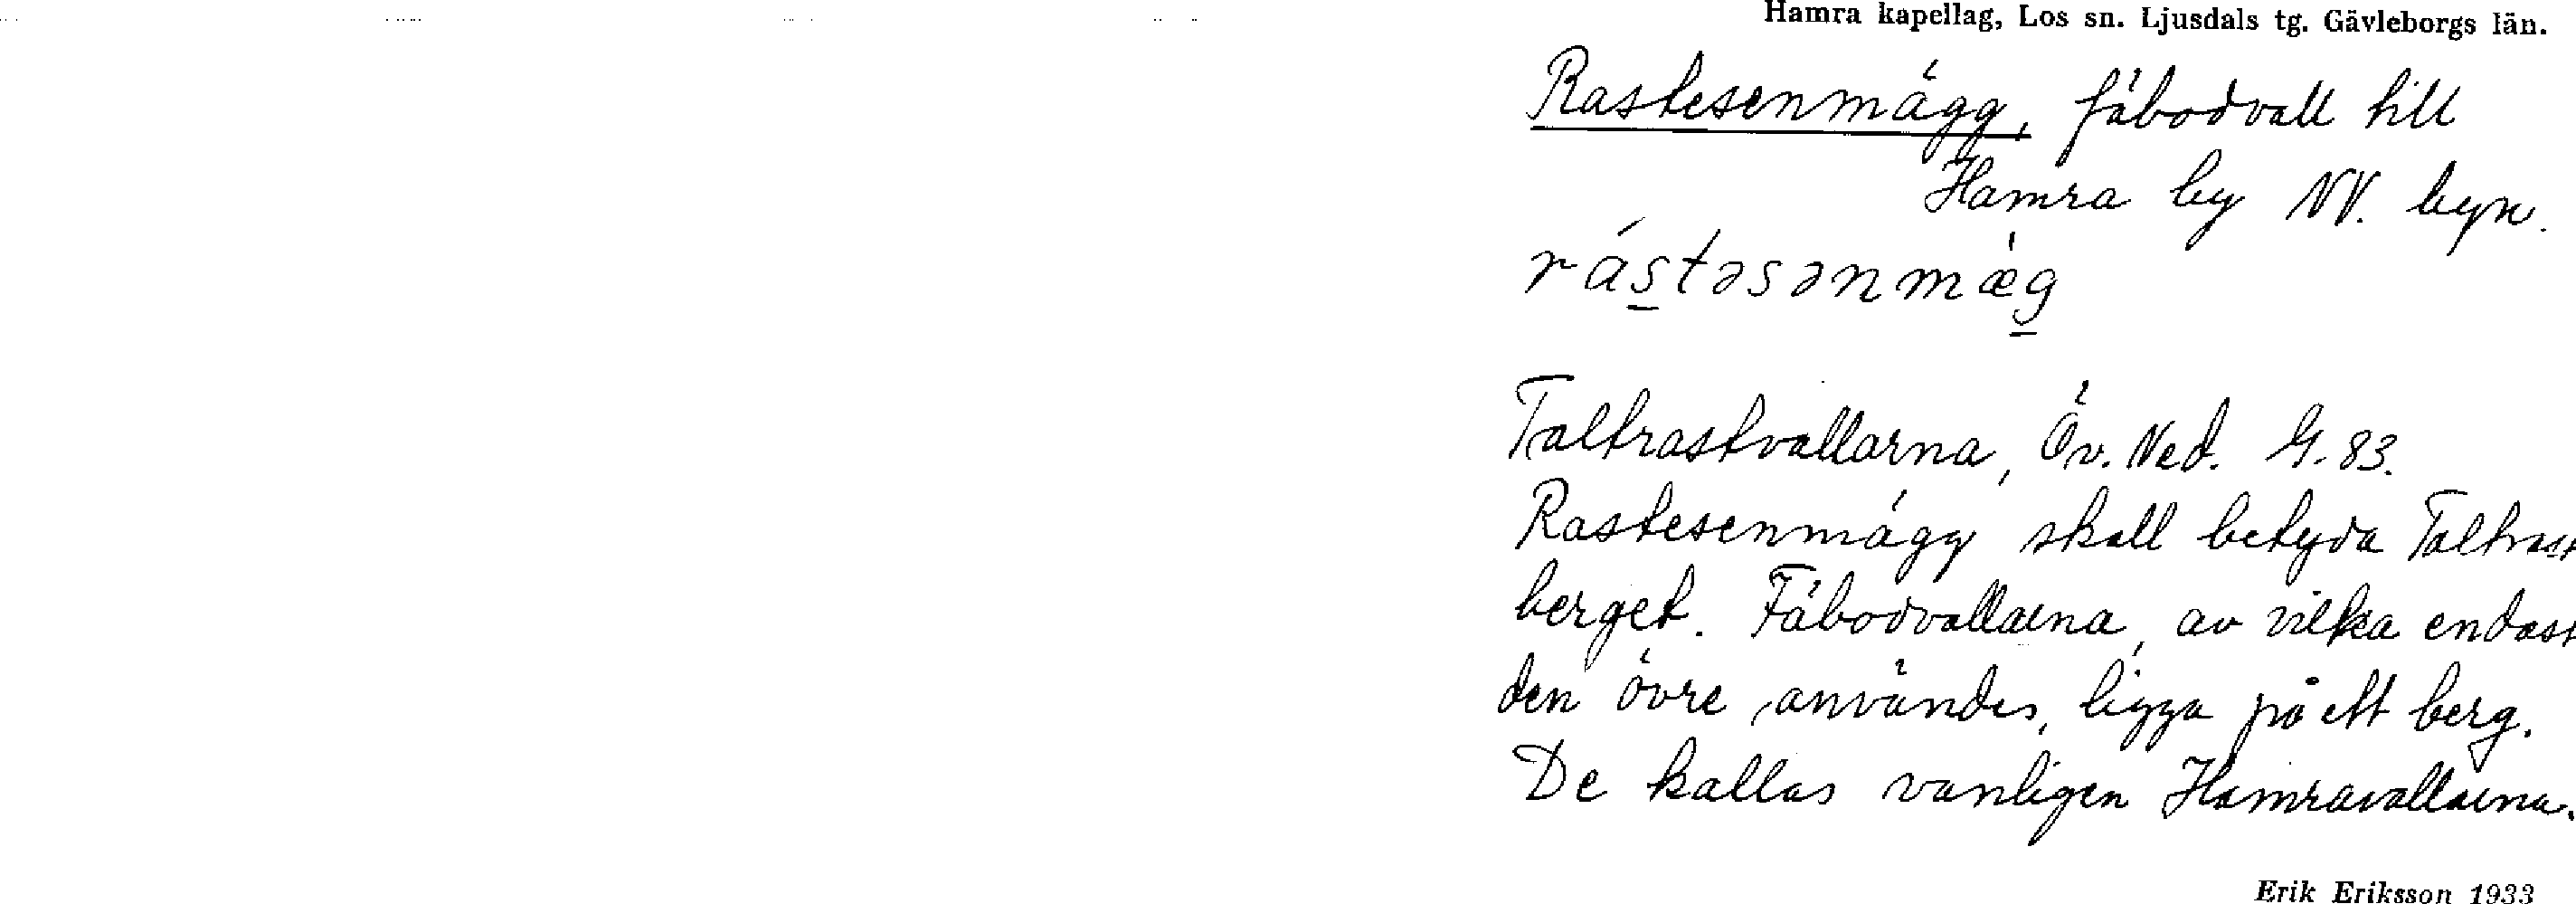 Hamra kapellag, Los sn. Ljusdals tg. Gävleborgs län.
Rastesenmägg, fäbodvall till
Hamra by NV. byn.
rástəsənmæ̀g
Taltrastvallarna, Öv. Ned. G. 83.
Rastesenmägg skall betyda Taltrast
berget. Fäbodvallarna, av vilka endast
den övre användes, ligga på ett berg.
De kallas vanligen Hamravallarna.
Erik Eriksson 1933